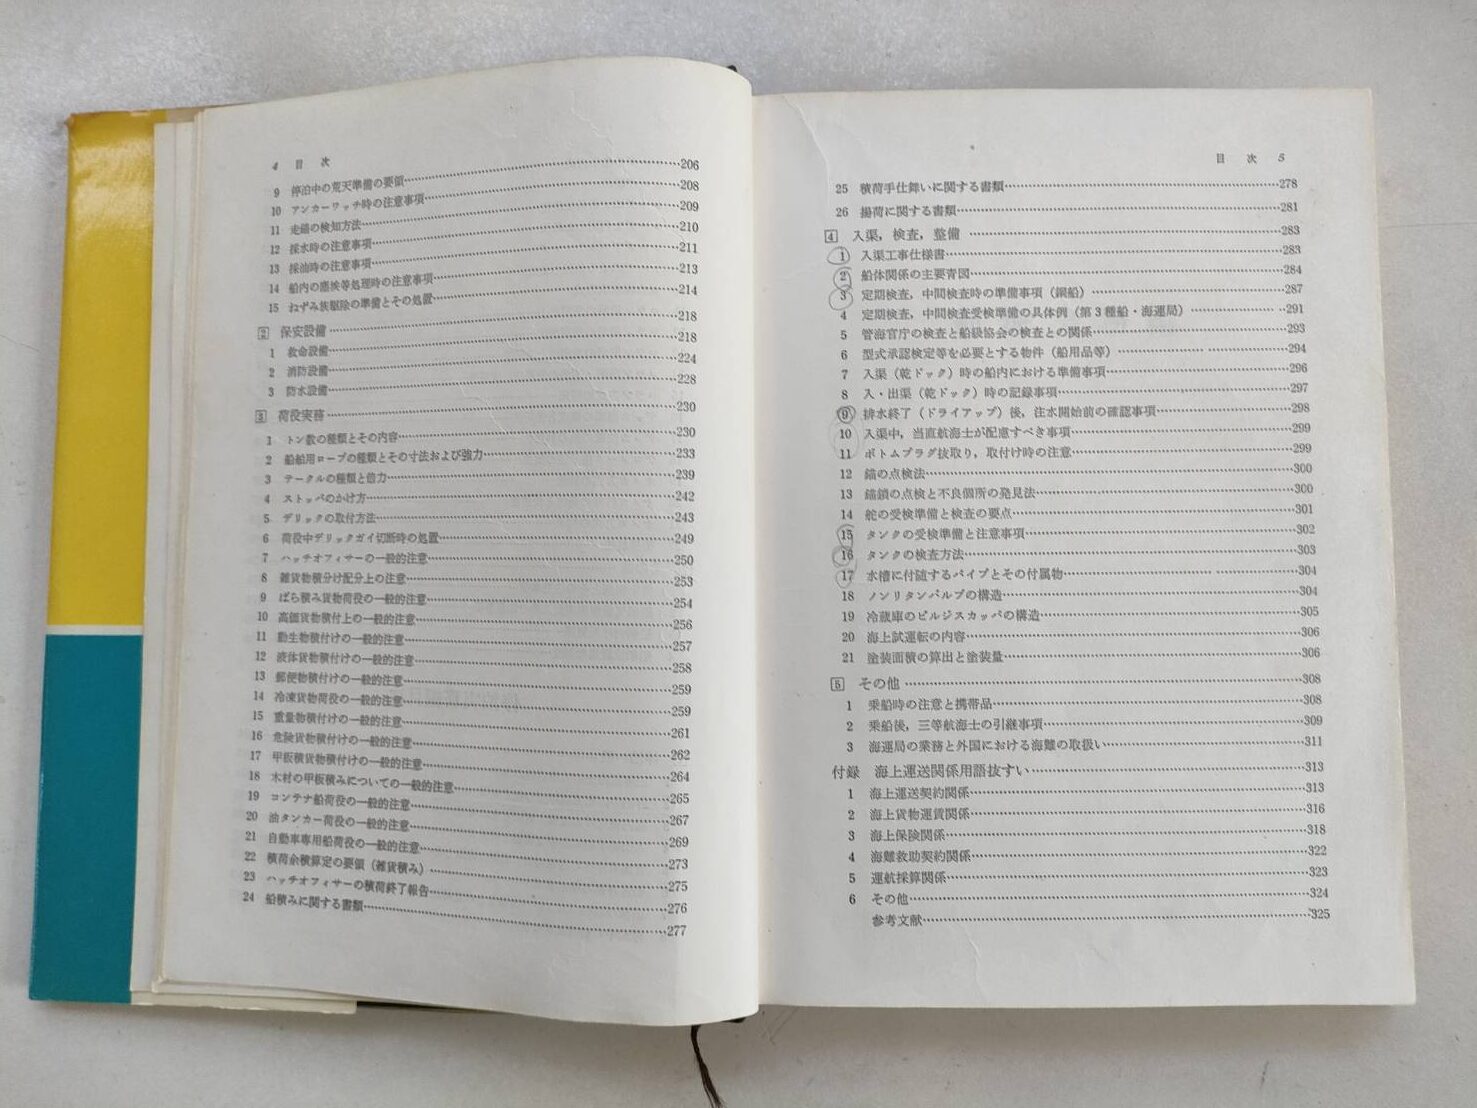 4 目 次
9 停泊中の荒天準備の要領……206
10 アンカーワッチ時の注意事項……208
11 走錨の検知方法……209
12 採水時の注意事項……210
13 採油時の注意事項……211
14 船内の塵埃等処理時の注意事項……213
15 ねずみ族駆除の準備とその処置……214
2 保安設備……218
1 救命設備……218
2 消防設備……224
3 防水設備……228
3 荷役実務……230
1 トン数の種類とその内容……230
2 船舶用ロープの種類とその寸法および強力……233
3 テークルの種類と倍力……239
4 ストッパのかけ方……242
5 デリックの取付方法……243
6 荷役中デリックガイ切断時の処置……249
7 ハッチオフィサーの一般的注意……250
8 雑貨物積分け配分上の注意……253
9 ばら積み貨物荷役の一般的注意……254
10 高価貨物積付上の一般的注意……256
11 動生物積付けの一般的注意……257
12 液体貨物積付けの一般的注意……258
13 郵便物積付けの一般的注意……259
14 冷凍貨物荷役の一般的注意……259
15 重量物積付けの一般的注意……261
16 危険貨物積付けの一般的注意……262
17 甲板積貨物積付けの一般的注意……264
18 木材の甲板積みについての一般的注意……265
19 コンテナ船荷役の一般的注意……267
20 油タンカー荷役の一般的注意……269
21 自動車専用船荷役の一般的注意……273
22 積荷余積算定の要領（雑貨積み）……275
23 ハッチオフィサーの積荷終了報告……276
24 船積みに関する書類……277
目 次 5
25 積荷手仕舞いに関する書類……278
26 揚荷に関する書類……281
4 入渠，検査，整備……283
1 入渠工事仕様書……283
2 船体関係の主要青図……284
3 定期検査，中間検査時の準備事項（鋼船）……287
4 定期検査，中間検査受検準備の具体例（第3種船・海運局）……291
5 管海官庁の検査と船級協会の検査との関係……293
6 型式承認検定等を必要とする物件（船用品等）……294
7 入渠（乾ドック）時の船内における準備事項……296
8 入・出渠（乾ドック）時の記録事項……297
9 排水終了（ドライアップ）後，注水開始前の確認事項……298
10 入渠中，当直航海士が配慮すべき事項……299
11 ボトムプラグ抜取り，取付け時の注意……299
12 錨の点検法……300
13 錨鎖の点検と不良個所の発見法……300
14 舵の受検準備と検査の要点……301
15 タンクの受検準備と注意事項……302
16 タンクの検査方法……303
17 水槽に付随するパイプとその付属物……304
18 ノンリタンバルブの構造……304
19 冷蔵庫のビルジスカッパの構造……305
20 海上試運転の内容……306
21 塗装面積の算出と塗装量……306
5 その他……308
1 乗船時の注意と携帯品……308
2 乗船後，三等航海士の引継事項……309
3 海運局の業務と外国における海難の取扱い……311
付録 海上運送関係用語抜すい……313
1 海上運送契約関係……313
2 海上貨物運賃関係……316
3 海上保険関係……318
4 海難救助契約関係……322
5 運航採算関係……323
6 その他……324
参考文献……325